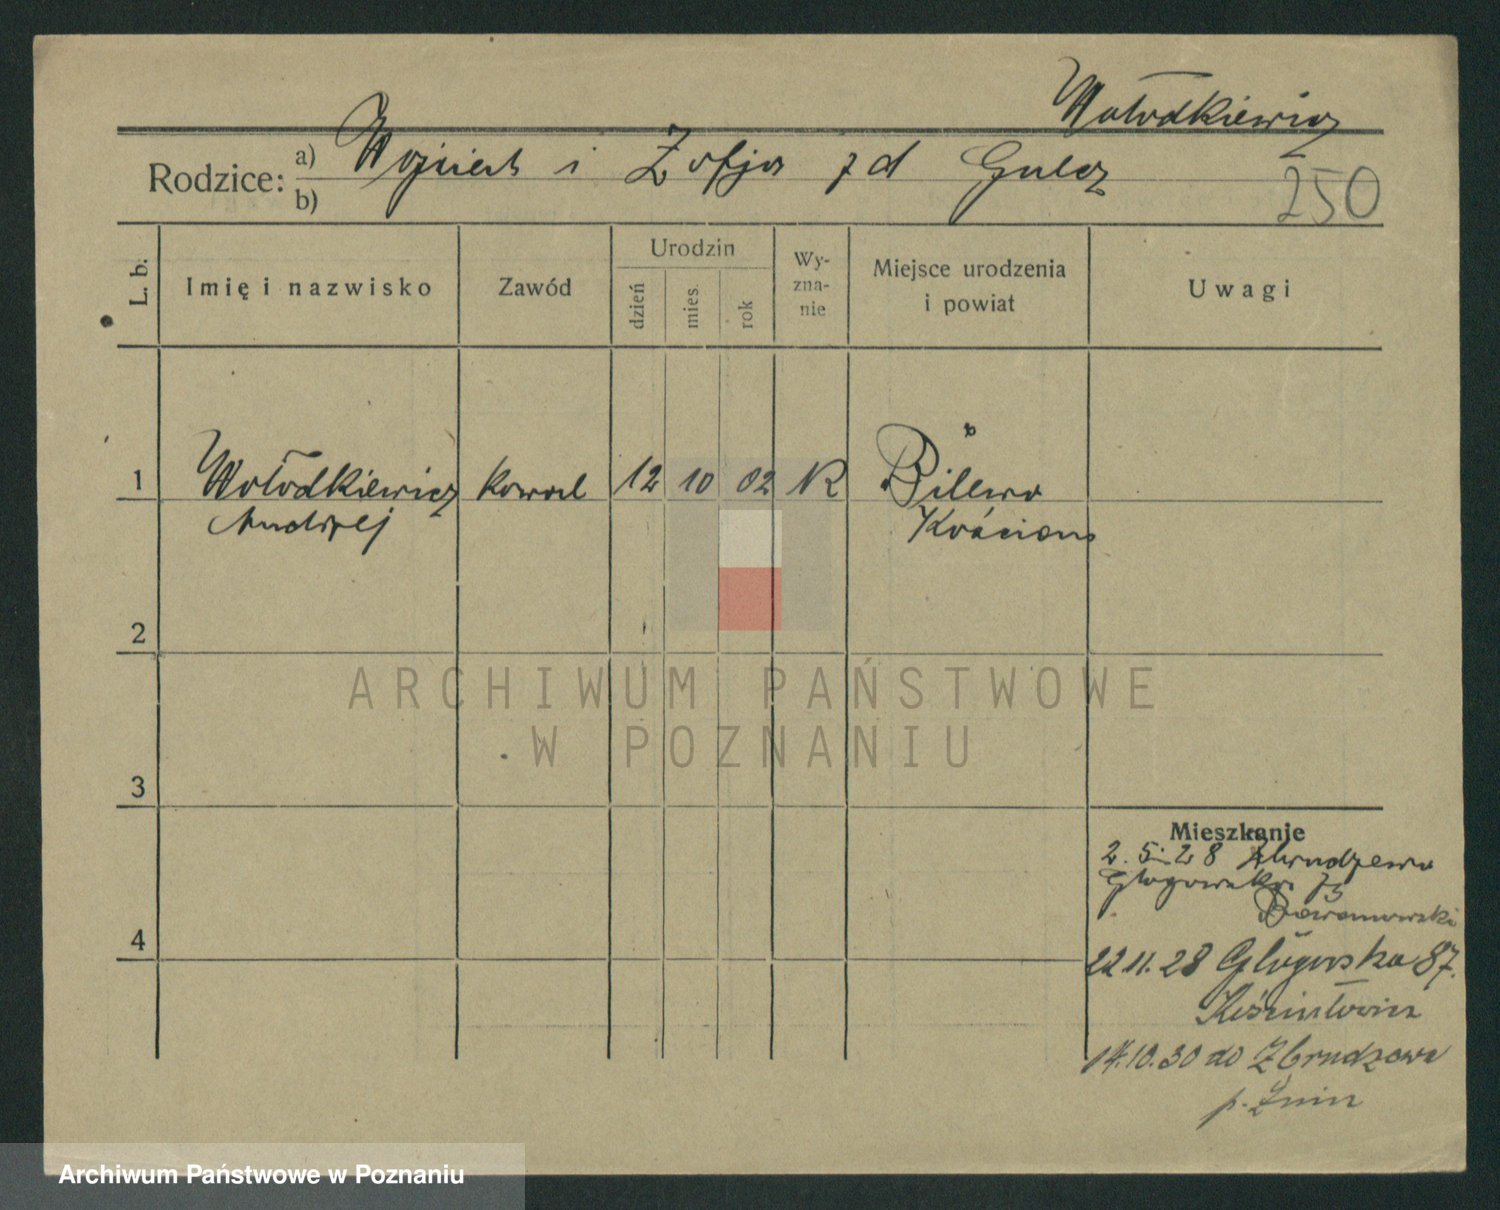 Wołodkiewicz
Rodzice: a) Wojciech i Zofja z d Gulcz
b)
250
L. b.
Imię i nazwisko
Zawód
Urodzin
dzień
mies.
rok
Wy-
zna-
nie
Miejsce urodzenia
i powiat
Uwagi
1 Wołodkiewicz kowal 12 10 02 R Bilewo
Andrzej Kościan
2
3
4
Mieszkanie
2. 5. 28
Głogowska 75
22 11. 28 Głogowska 87.
14.10.30 do
p. Żnin
ARCHIWUM PAŃSTWOWE
W POZNANIU
Archiwum Państwowe w Poznaniu